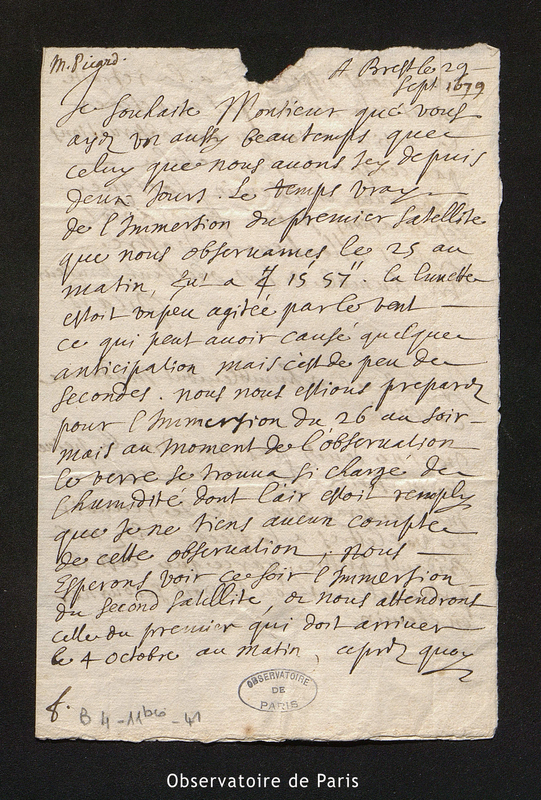 M. Picard.
A Brest le 29
Sept 1679
Je souhaite Monsieur que vous
ayéz un aussy beau temps que
celuy que nous avons icy depuis
deux Jours. Le temps vray
de l'Immersion du premier Satellite
que nous observames le 25 au
matin, fut a 4 15 57". la lunette
estoit un peu agitée par le vent
ce qui peut avoir causé quelque
anticipation mais c'est de peu de
secondes. nous nous estions preparéz
pour l'Immersion du 26 au soir
mais au moment de l'observation
le verre se trouva si chargé de
l'humidité dont l'air estoit remply
que je ne tiens aucun compte
de cette observation, nous
Esperons voir ce soir l'Immersion
du second satellite, et nous attendrons
celle du premier qui doit arriver
le 4 octobre au matin, apréz quoy
f.
B 4 - 11 bis - 41
OBSERVATOIRE
DE
PARIS
Observatoire de Paris